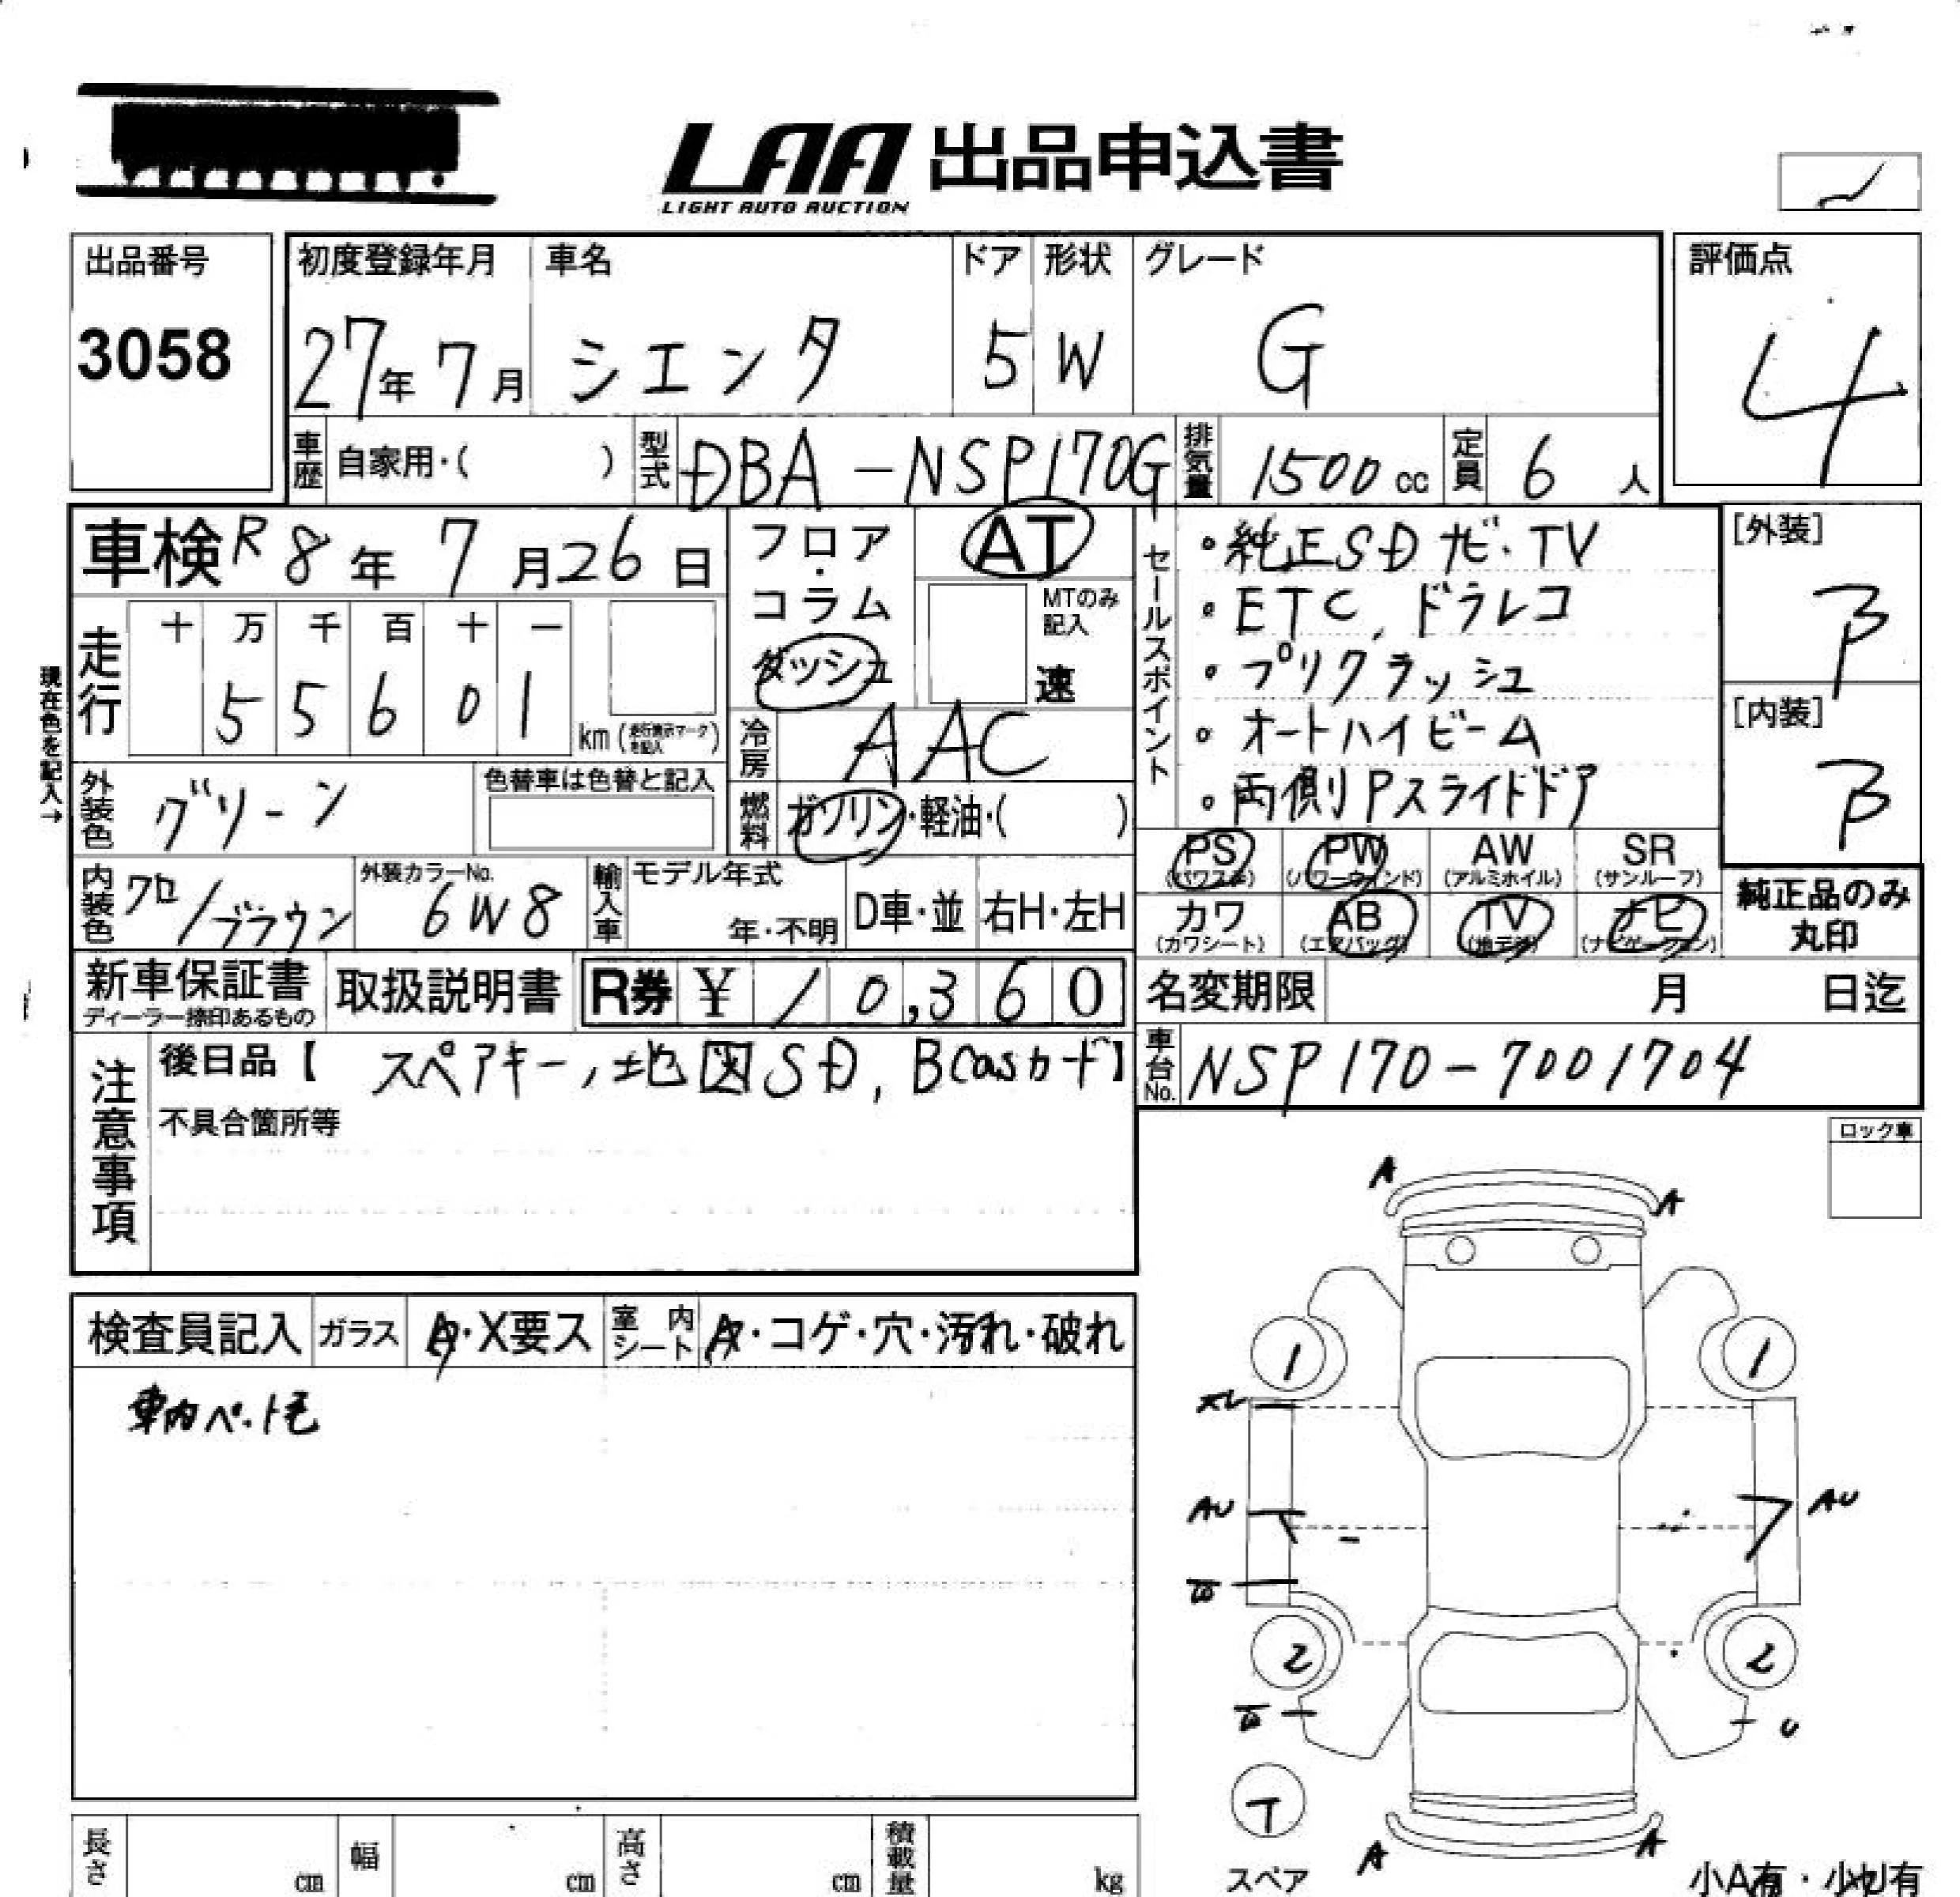 LAA 出品申込書
LIGHT AUTO AUCTION
出品番号
3058
初度登録年月
27年7月
車名
シエンタ
ドア
5
形状
W
グレード
G
評価点
4
車歴 自家用・( )
型式 DBA-NSP170G
排気量 1500cc
定員 6人
車検 R8年7月26日
フロア・コラム
ダッシュ
AT
MTのみ記入
速
セールスポイント
・純正SDナビ・TV
・ETC、ドラレコ
・プリクラッシュ
・オートハイビーム
・両側Pスライドドア
[外装]
B
[内装]
B
現在色を記入→
走行
十 万 千 百 十 一
5 5 6 0 1 km
冷房 AAC
外装色 グリーン
色替車は色替と記入
燃料 ガソリン・軽油・( )
PS (パワステ)
PW (パワーウィンド)
AW (アルミホイル)
SR (サンルーフ)
カワ (カワシート)
AB (エアバッグ)
TV (地デジ)
ナビ (ナビゲーション)
純正品のみ
丸印
内装色 クロ/ブラウン
外装カラーNo.
6W8
輸入車
モデル年式
年・不明
D車・並
右H・左H
新車保証書
ディーラー捺印あるもの
取扱説明書
R券 ¥ 10,360
名変期限 月 日迄
車台No. NSP170-7001704
注意事項
後日品【 スペアキー、地図SD, Bcasカード】
不具合箇所等
ロック車
検査員記入 ガラス A・X要ス 室内シート A・コゲ・穴・汚れ・破れ
車内ペット毛
A
A
1
1
AU
AU
2
2
U
T
スペア
A
A
長さ cm
幅 cm
高さ cm
積載量 kg
小A有・小U有